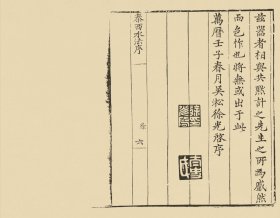 茲器者相與共默計之先生之所爲蹙然
而色怍也將無或出于此
萬曆壬子春月吳淞徐光啓序
泰西水法序
序
六